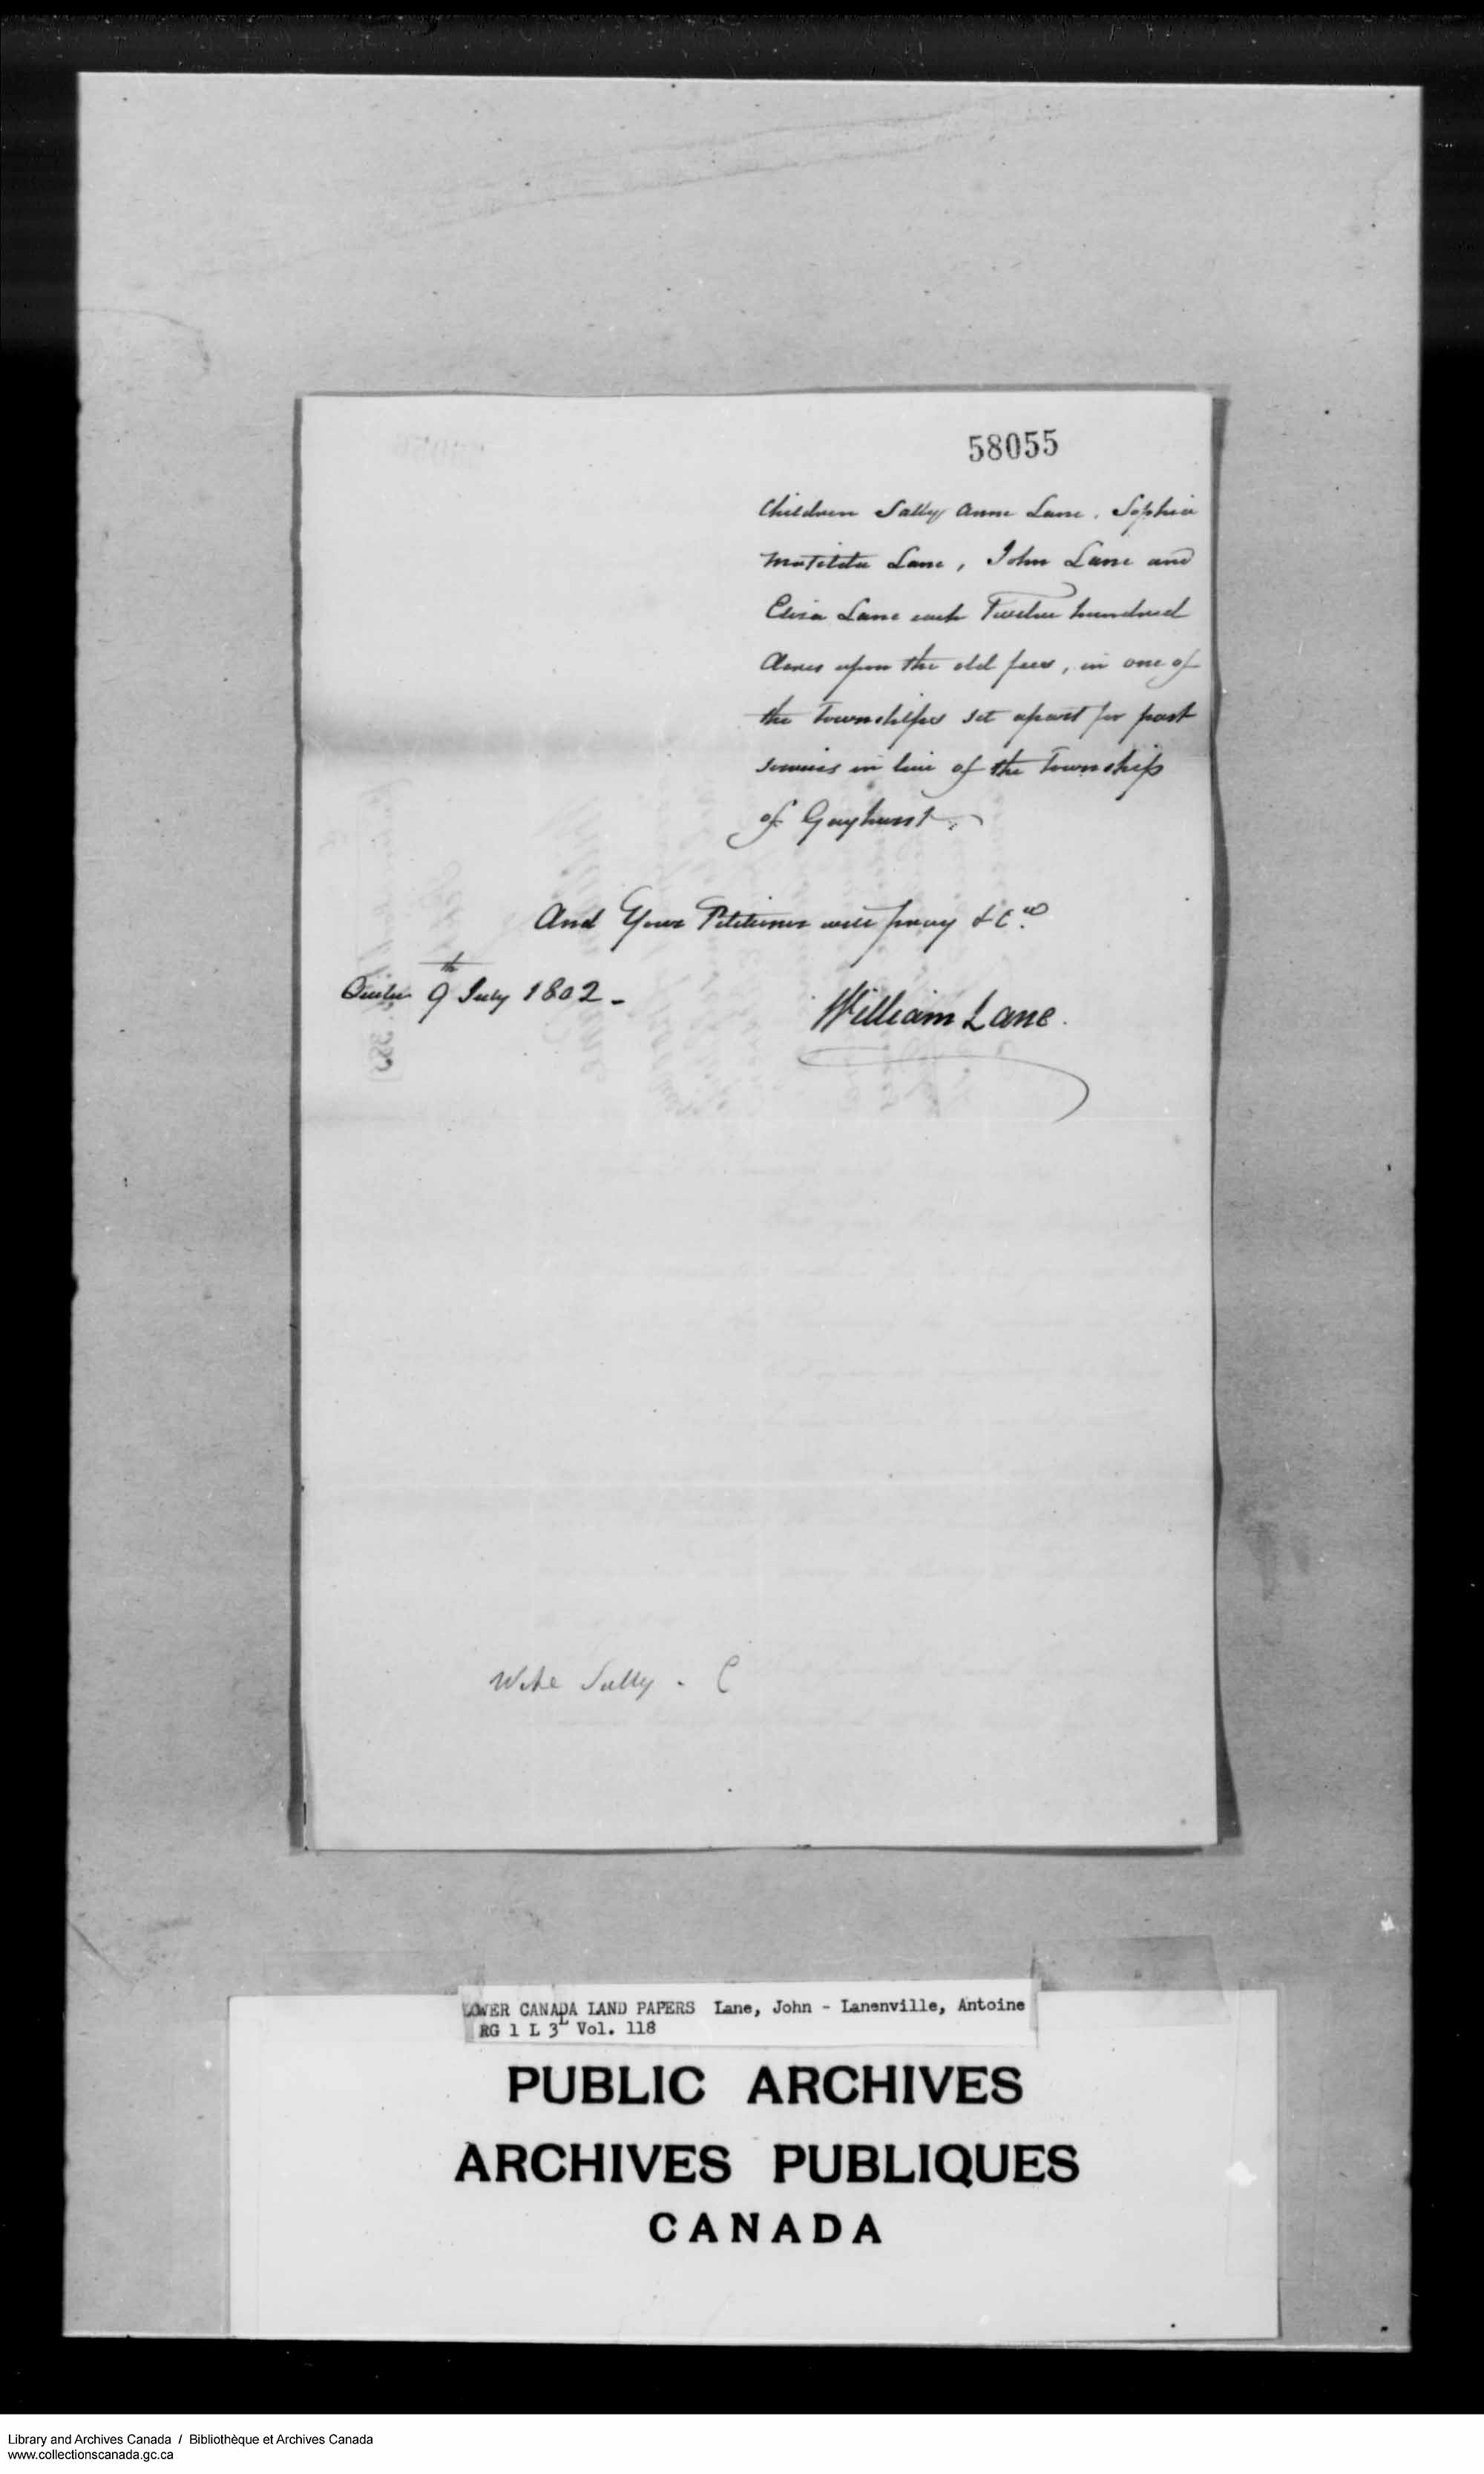 58055
Children Sally Anne Lane, Sophia
Matilda Lane, John Lane and
Eliza Lane each Twelve hundred
Acres upon the old fees, in one of
the Townships set apart for past
services in lieu of the Township
of Gayhurst.
And Your Petitioner will pray &c.
Quebec 9th July 1802 -
William Lane.
Wife Sally - C
LOWER CANADA LAND PAPERS Lane, John - Lanenville, Antoine
RG 1 L 3L Vol. 118
PUBLIC ARCHIVES
ARCHIVES PUBLIQUES
CANADA
Library and Archives Canada / Bibliothèque et Archives Canada
www.collectionscanada.gc.ca